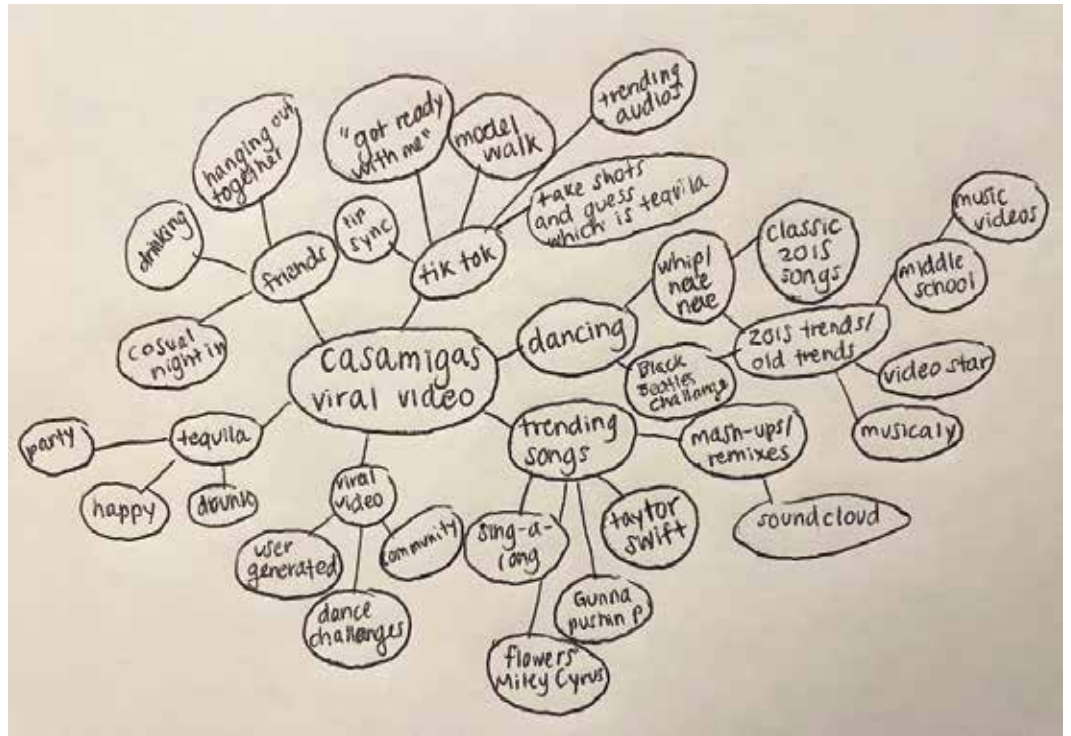 casamigas
viral video
friends
hanging out
together
drinking
cosual
night in
tik tok
lip
sync
"got ready
with me"
model
walk
trending
audios
take shots
and guess
which is tequila
dancing
whip/
nae
nae
classic
2015
songs
Black
Beatles
challange
2015 trends/
old trends
middle
school
music
videos
video star
musicaly
trending
songs
mash-ups/
remixes
soundcloud
taylor
swift
Gunna
pushin p
flowers
Miley Cyrus
sing-a-
long
viral
video
community
dance
challenges
user
generated
tequila
party
happy